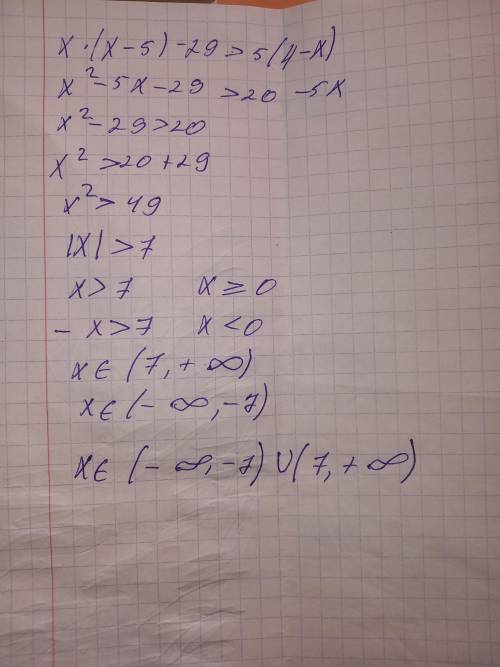 x·(x-5)-29>5(4-x)
x²-5x-29>20-5x
x²-29>20
x²>20+29
x²>49
|x|>7
x>7 x≥0
-x>7 x<0
x∈(7,+∞)
x∈(-∞,-7)
x∈(-∞,-7)∪(7,+∞)